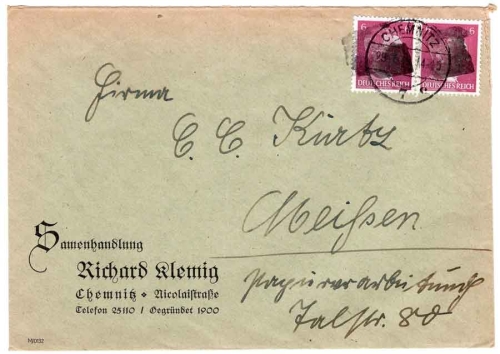 6 6
DEUTSCHES REICH DEUTSCHES REICH
CHEMNITZ
7
Firma
C. C. Kurtz
Meißen
Papierverarbeitung
Talstr. 80
Samenhandlung
Richard Klemig
Chemnitz ⬥ Nicolaistraße
Telefon 25110 / Gegründet 1900